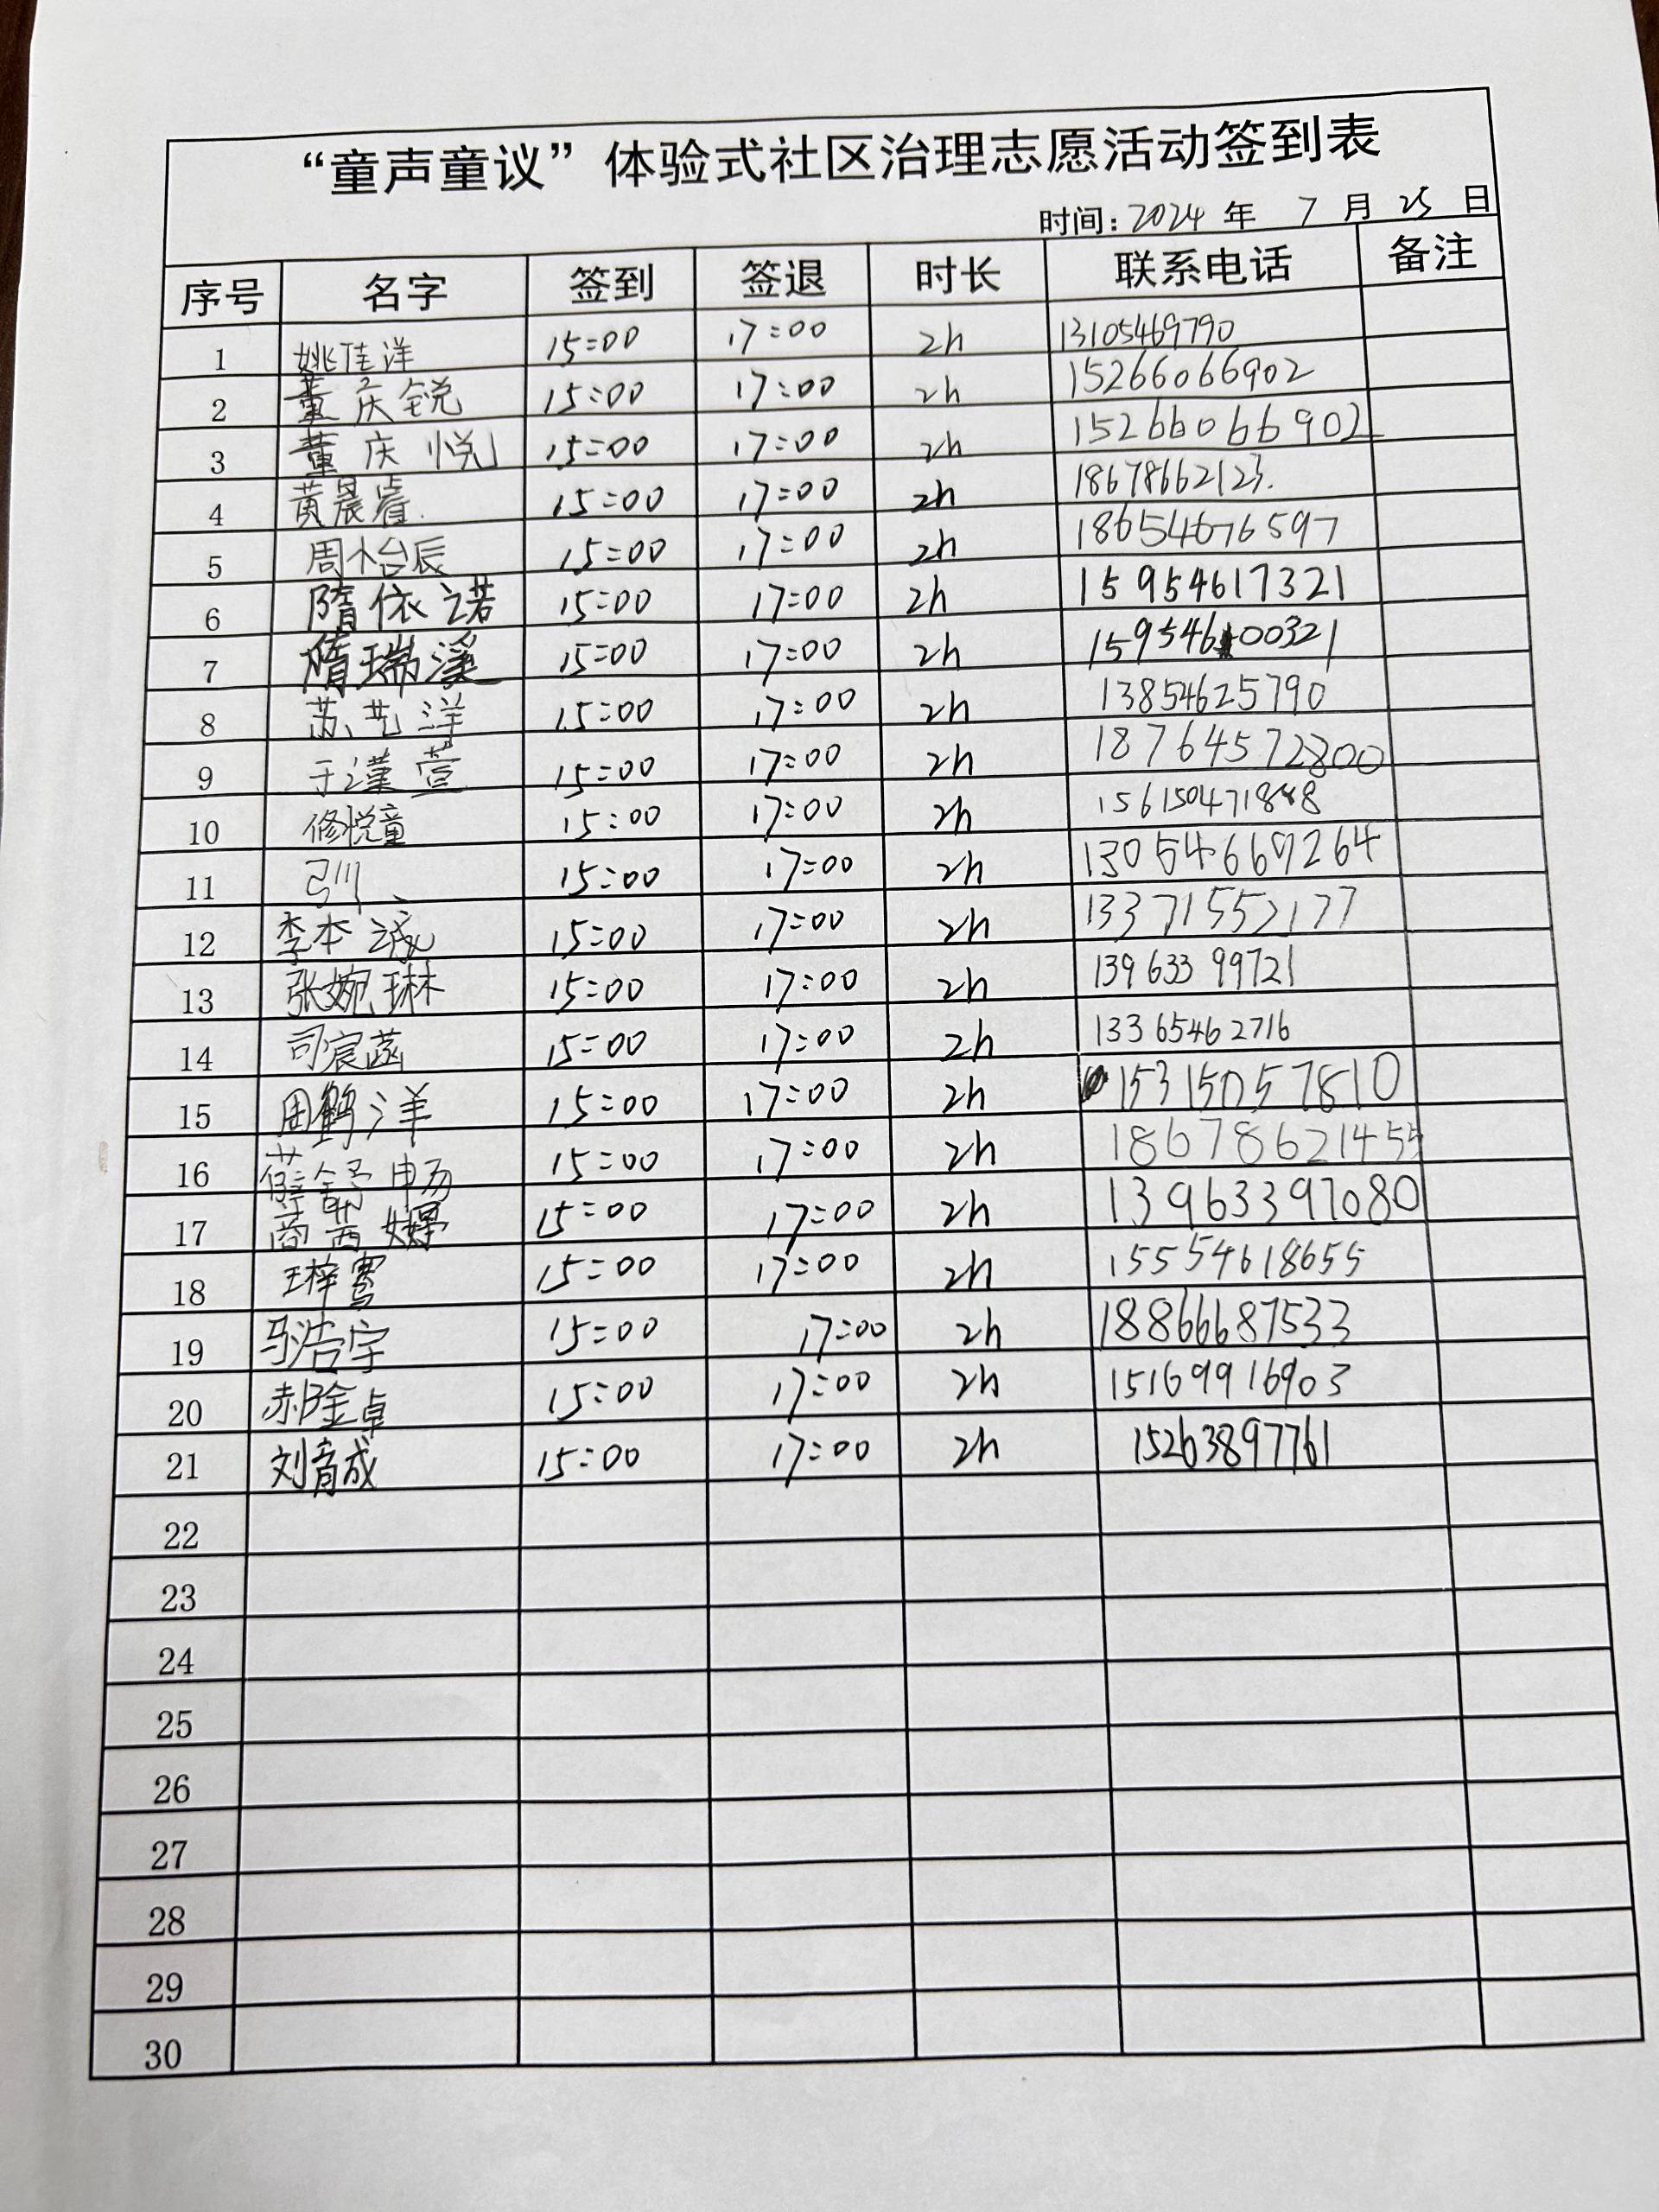 “童声童议”体验式社区治理志愿活动签到表
时间：2024 年 7 月 25 日
序号 名字 签到 签退 时长 联系电话 备注
1 姚佳洋 15:00 17:00 2h 13105469790
2 董庆锐 15:00 17:00 2h 15266066902
3 董庆悦 15:00 17:00 2h 15266066902
4 黄晨睿 15:00 17:00 2h 18678662123.
5 周怡辰 15:00 17:00 2h 18654676597
6 隋依诺 15:00 17:00 2h 15954617321
7 隋瑞溪 15:00 17:00 2h
8 苏艺洋 15:00 17:00 2h 13854625790
9 于瑾萱 15:00 17:00 2h 18764572800
10 修悦童 15:00 17:00 2h
11 15:00 17:00 2h
12 李本诚 15:00 17:00 2h 13371552177
13 张婉琳 15:00 17:00 2h 13963399721
14 司宸菡 15:00 17:00 2h 13365462716
15 周鹤洋 15:00 17:00 2h 15315057810
16 薛舒畅 15:00 17:00 2h 18678621455
17 商茜 15:00 17:00 2h 13963397080
18 王梓鸾 15:00 17:00 2h 15554618655
19 马浩宇 15:00 17:00 2h 18866687533
20 金卓 15:00 17:00 2h 15169916903
21 刘育成 15:00 17:00 2h 15263897761
22
23
24
25
26
27
28
29
30